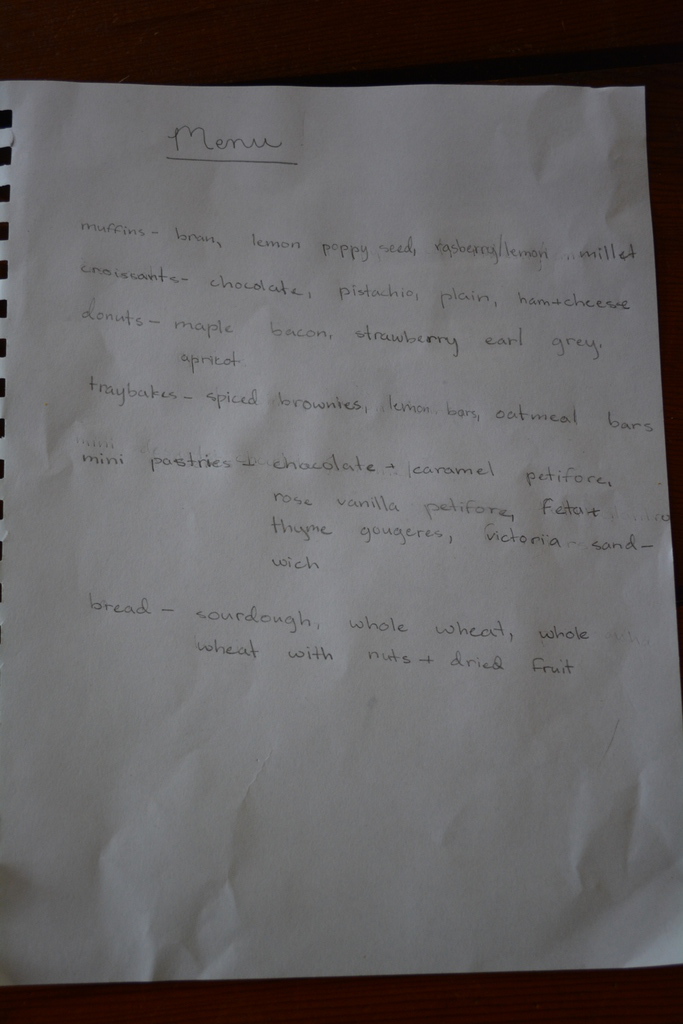 Menu
muffins - bran, lemon poppy seed, rasberry/lemon, millet
croissants - chocolate, pistachio, plain, ham+cheese
donuts - maple bacon, strawberry earl grey,
apricot
traybakes - spiced brownies, lemon bars, oatmeal bars
mini pastries - chocolate + caramel petifore,
rose vanilla petifore, feta+
thyme gougeres, victoria sand-
wich
bread - sourdough, whole wheat, whole
wheat with nuts + dried fruit